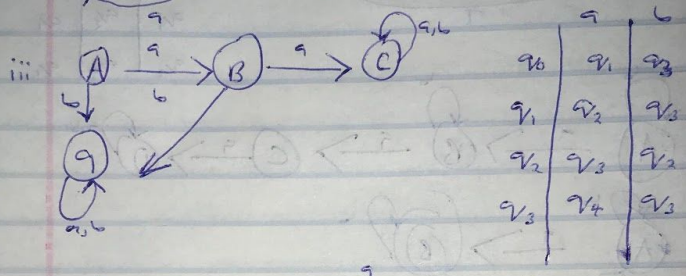 a
iii A a B a C a,b
b b
q
a,b
a b
q0 q1 q3
q1 q2 q3
q2 q3 q2
q3 q4 q3
a